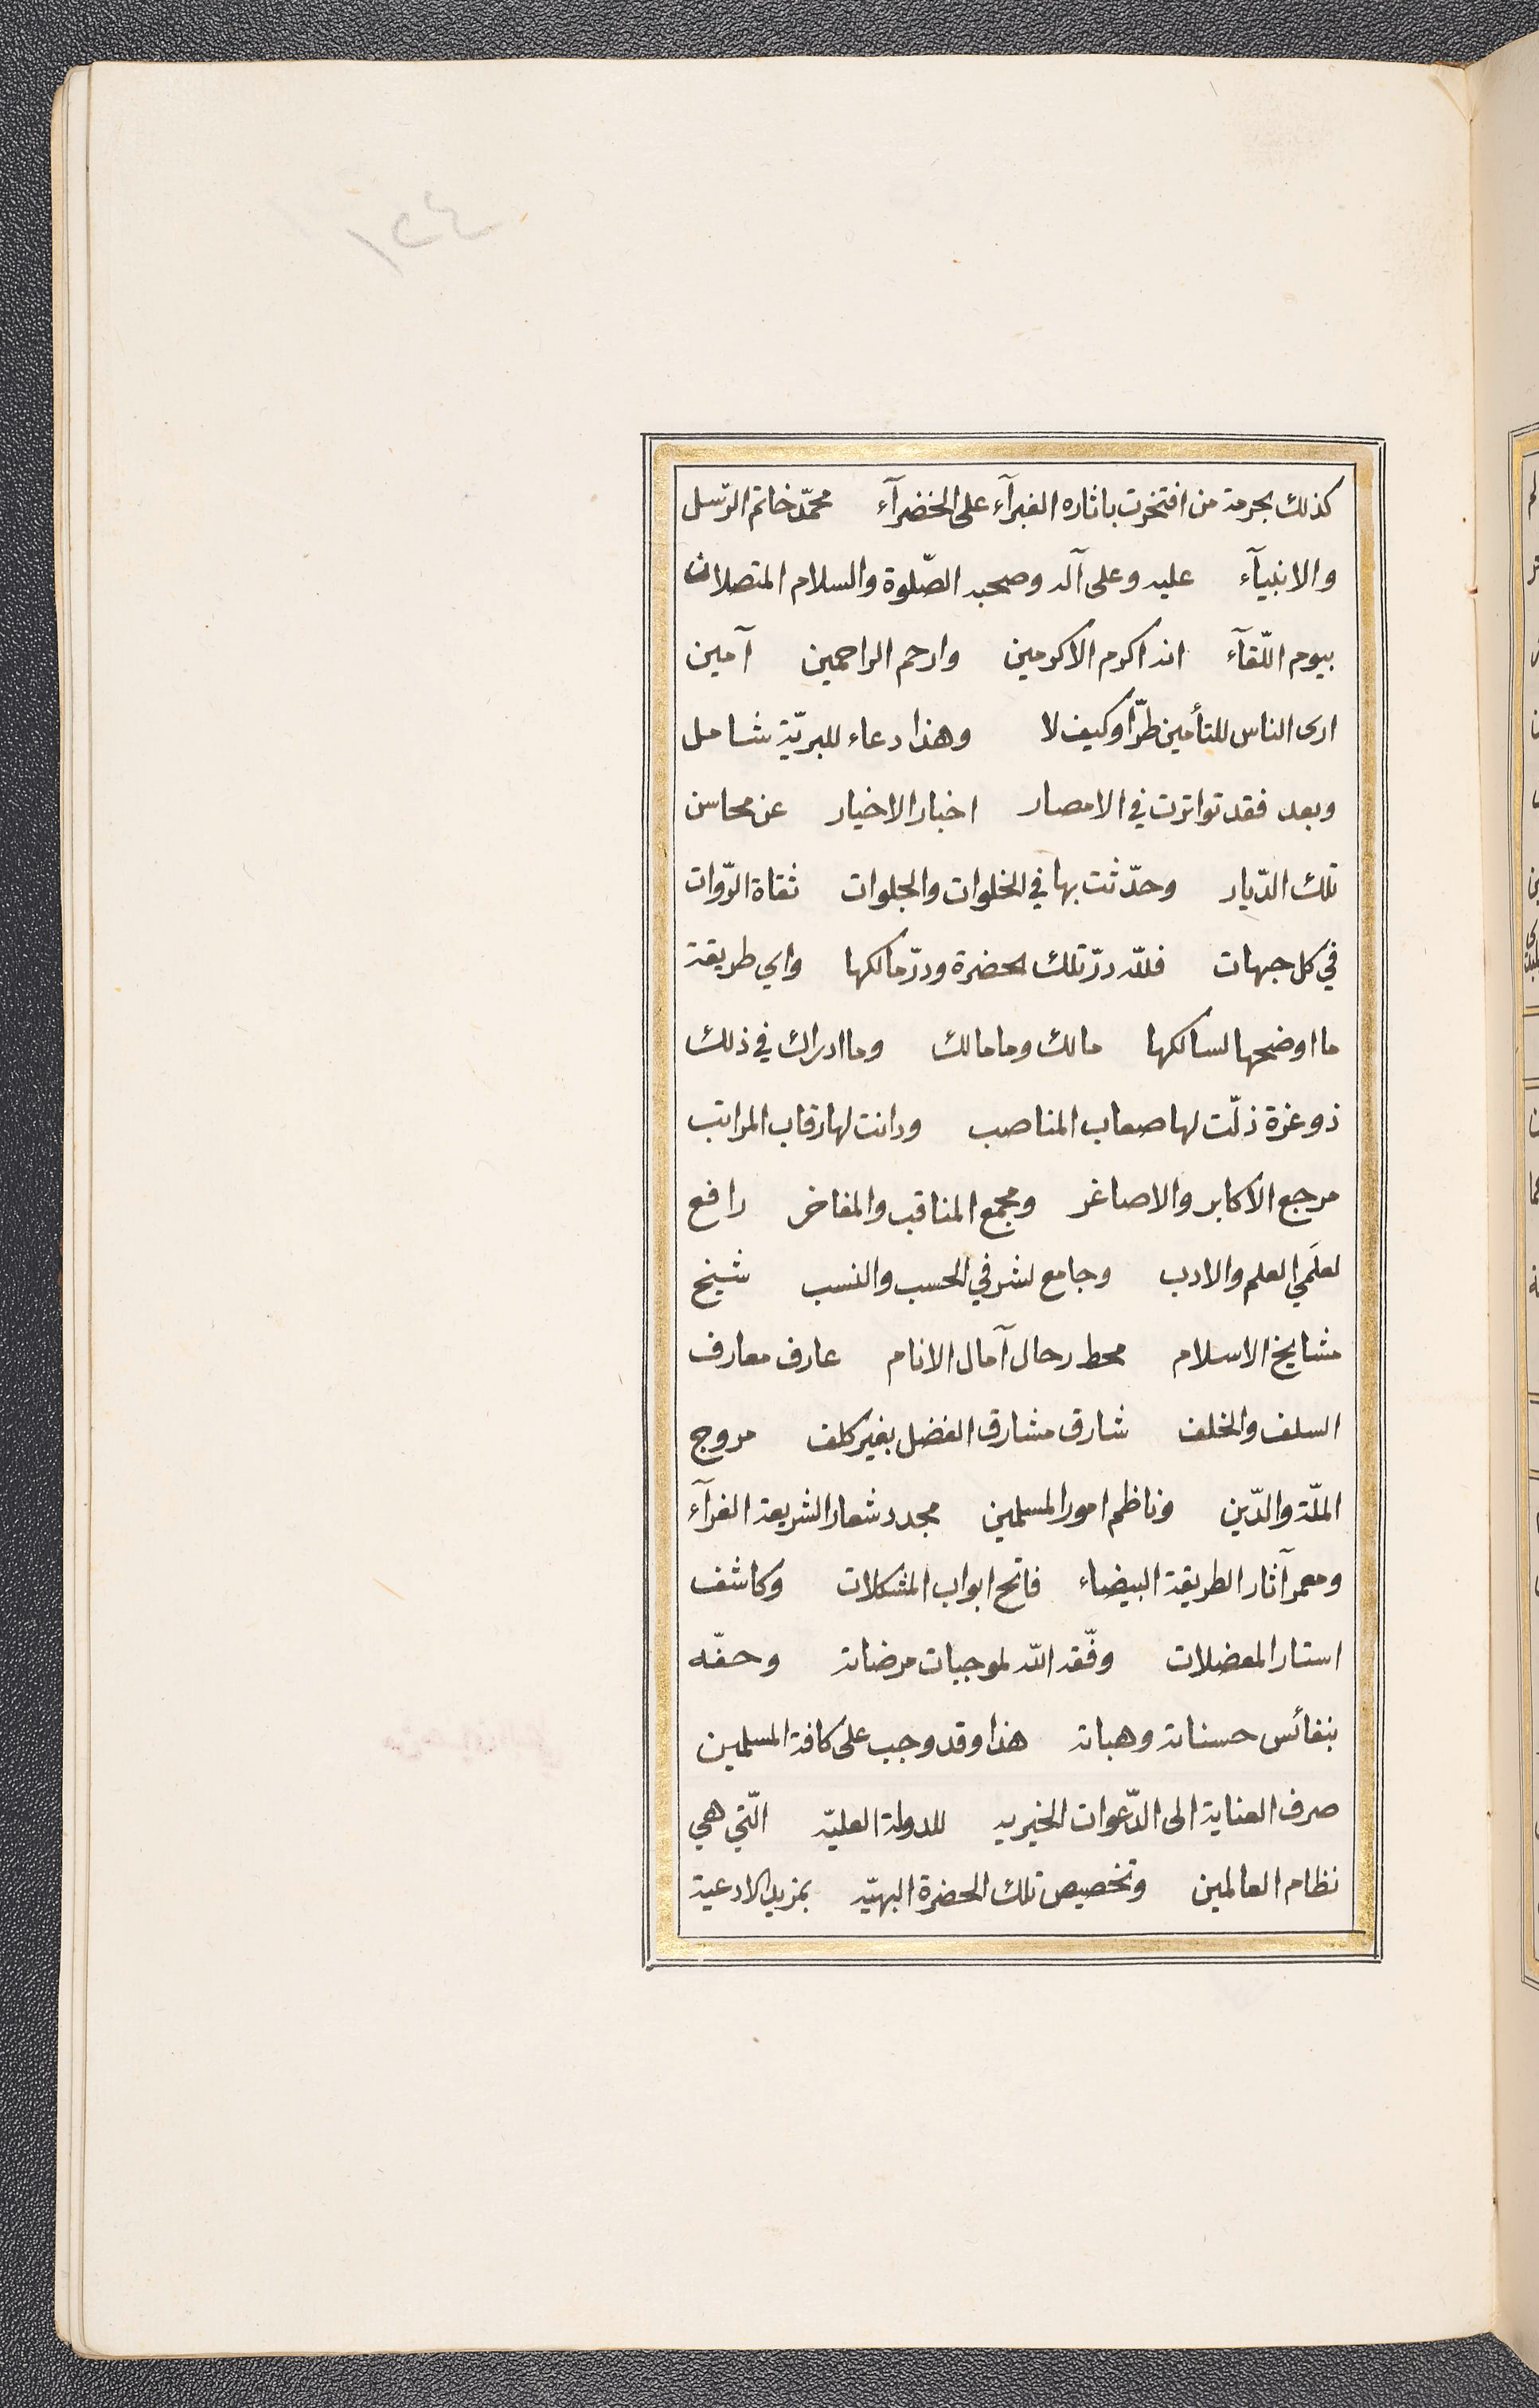 ١٢٤
كذلك بحرمة من افتخرت باثاره الغبرآء على الخضرآء محمّد خاتم الرّسل
والانبيآء عليه وعلى آله وصحبه الصّلوة والسلام المتصلان
بيوم اللّقآء انه اكرم الاكرمين وارحم الراحمين آمين
ارى الناس للتأمين طرّا وكيف لا وهذا دعاء للبريّة شامل
وبعد فقد تواترت في الامصار اخبار الاخيار عن محاسن
تلك الدّيار وحدّثت بها في الخلوات والجلوات ثقاة الرّوات
في كل جهات فللّه درّ تلك الحضرة ودرّ مالكها واي طريقة
ما اوضحها لسالكها مالك وما مالك وما ادراك في ذلك
ذو عزة ذلّت لها صعاب المناصب ودانت لها رقاب المراتب
مرجع الاكابر والاصاغر ومجمع المناقب والمفاخر رافع
لعلَمي العلم والادب وجامع لشرفي الحسب والنسب شيخ
مشايخ الاسلام محط رحال آمال الانام عارف معارف
السلف والخلف شارق مشارق الفضل بغير كلف مروج
الملّة والدّين وناظم امور المسلمين مجدد شعار الشريعة الغرآء
ومعمر آثار الطريقة البيضاء فاتح ابواب المشكلات وكاشف
استار المعضلات وفّقه اللّه لموجبات مرضاته وحفّه
بنفائس حسناته وهباته هذا وقد وجب على كافة المسلمين
صرف العناية الى الدّعوات الخيريه للدولة العليّه الّتي هي
نظام العالمين وتخصيص تلك الحضرة البهيّه بمزيد الادعية